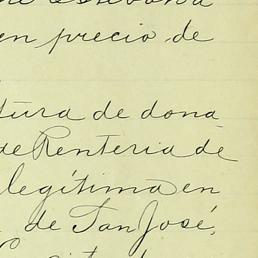 en precio de
tura de dona
de Renteria de
legítima en
de San José,